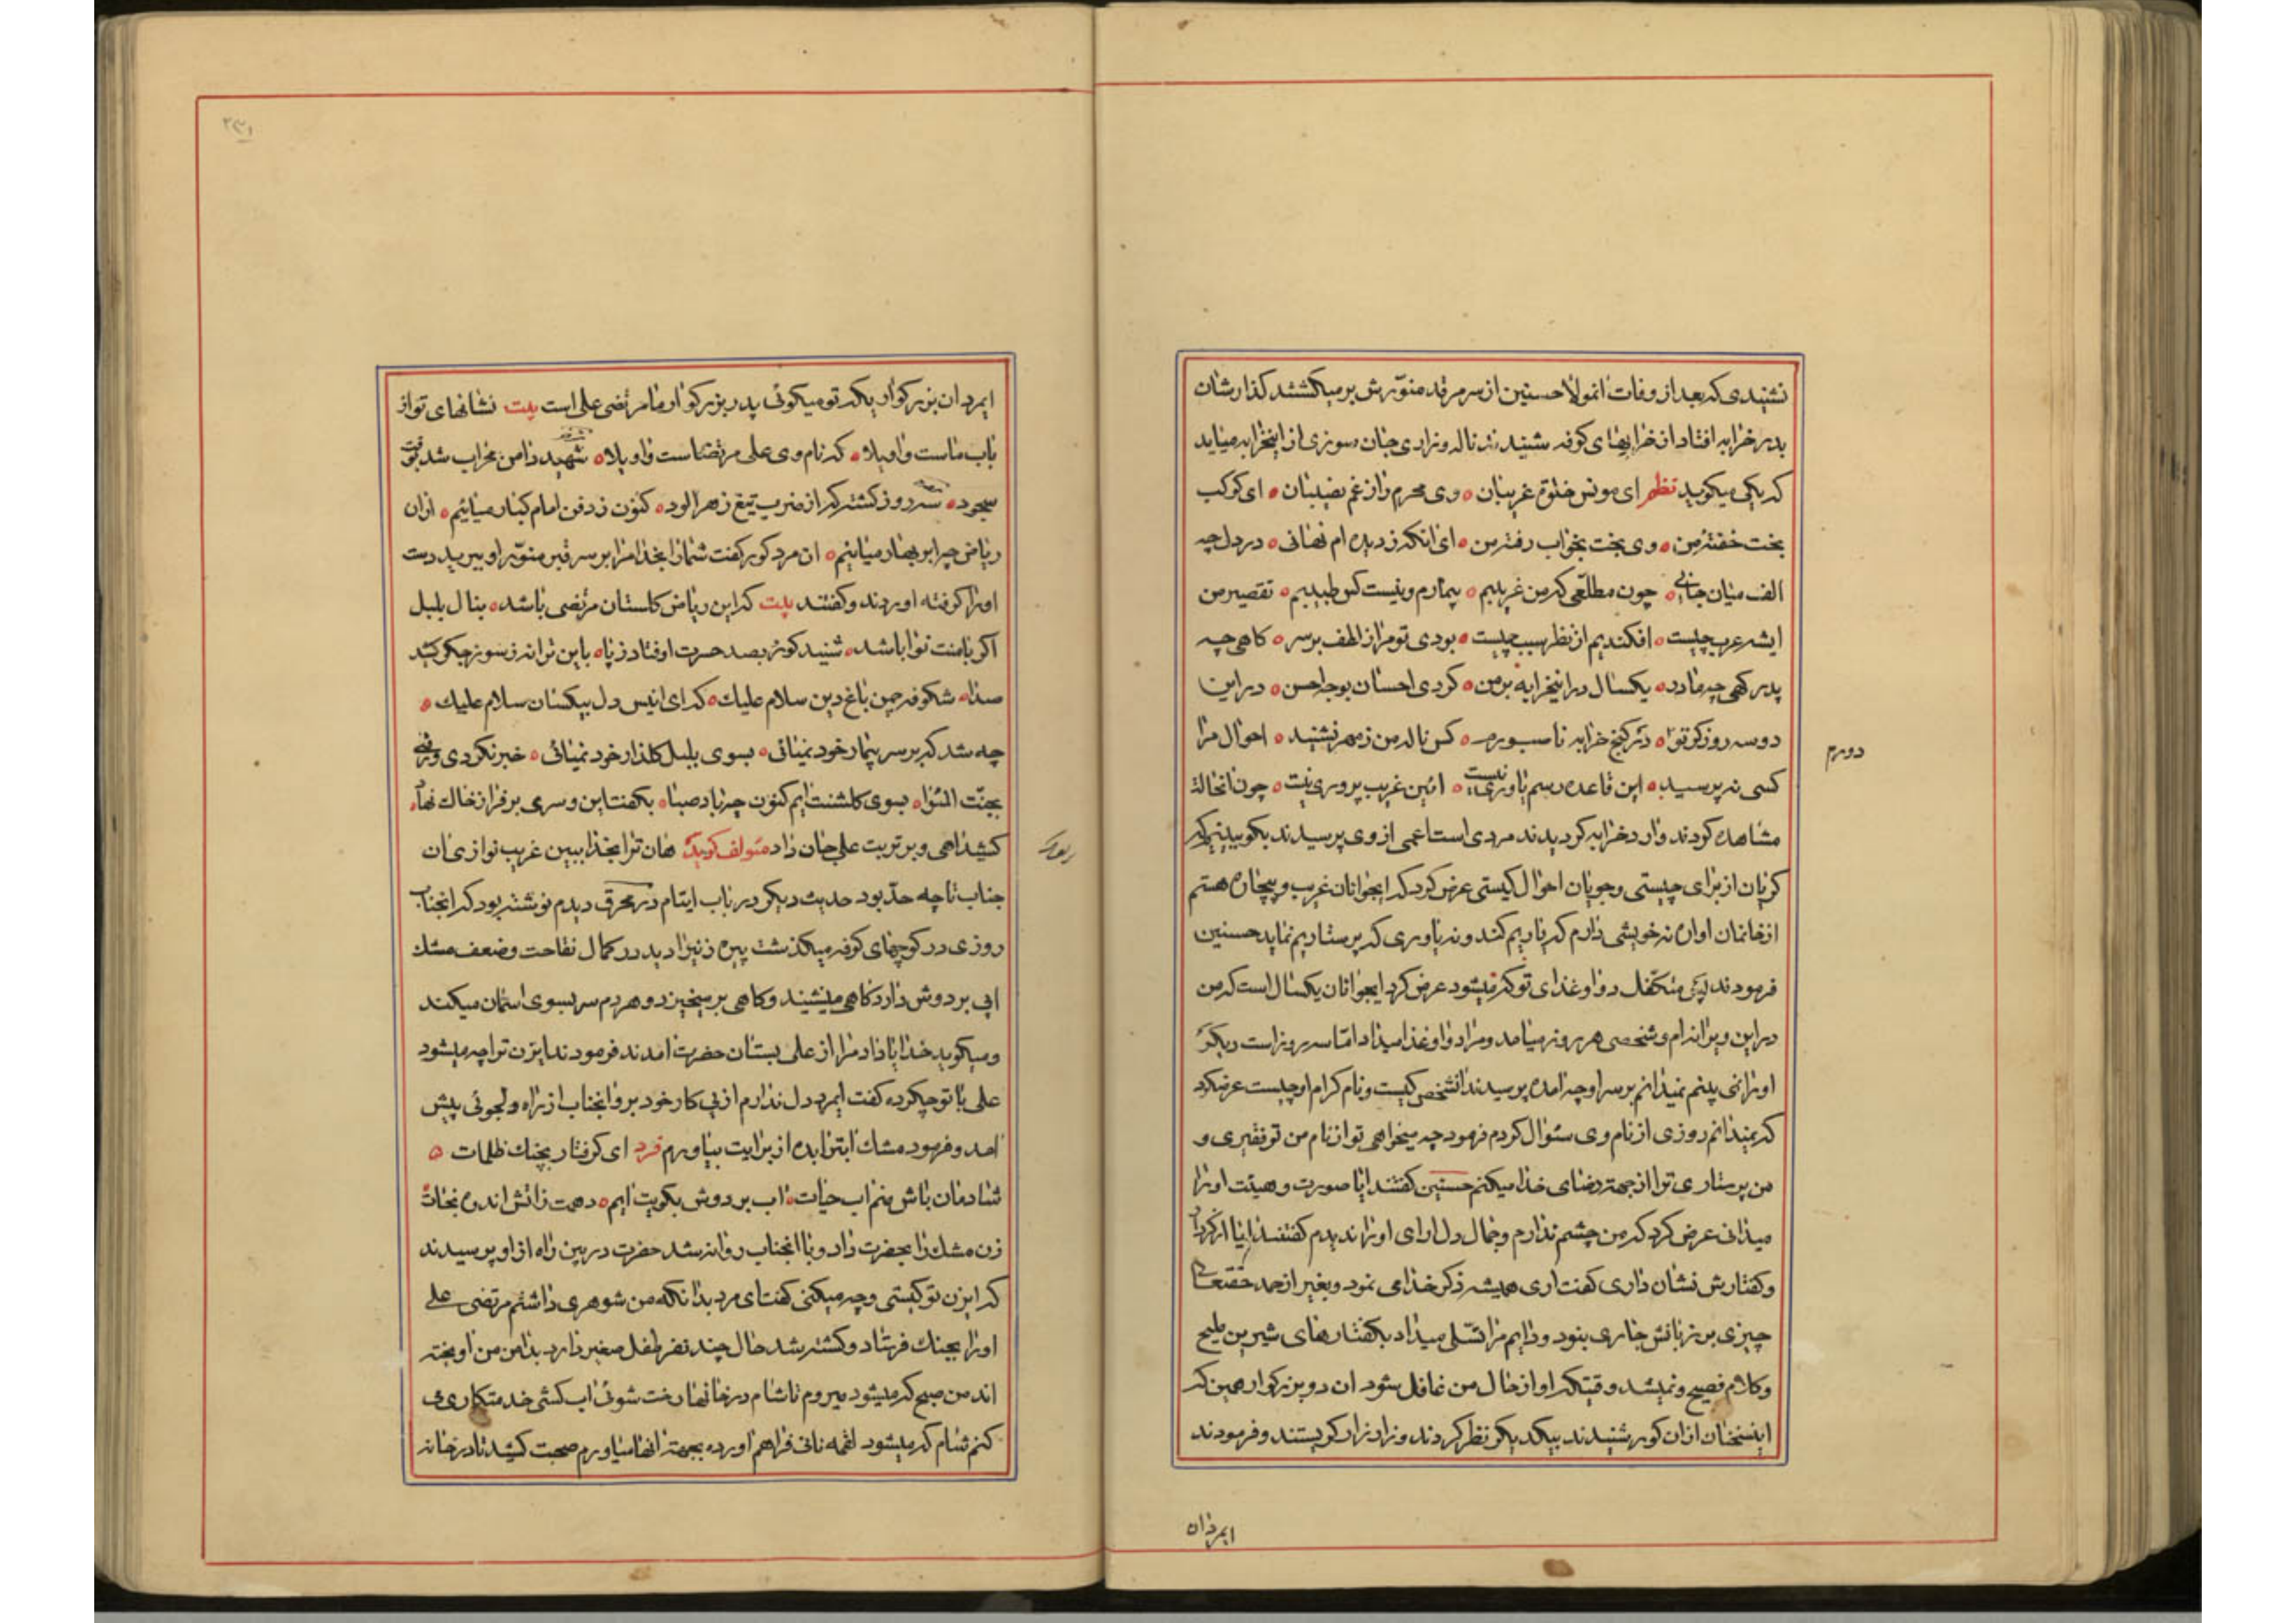 نشنیدی که بعد از وفات انمولا حسنین از سر مرقد منورش برمیکشتند کذارشان
بدر خرابه افتاد از خرابهای کوفه شنیدند ناله و زاری جان سوزی از انخرابه میاید
که یکی میکوید نظم ای مونس خلوة غریبان وی محرم راز غم نصیبان ای کوکب
بخت خفتهٔ من وی بخت بخواب رفتهٔ من ای انکه ز دیده ام نهانی در دل چه
الف میان جانی چون مطلعی که من غریبم بیمارم و نیست کس طبیبم تقصیر من
ایشه عرب چیست افکندیم از نظر سبب چیست بودی تو مرا ز لطف بر سر کاهی چه
پدر کهی چه مادر یکسال در اینخرابه بر من کردی احسان بوجه احسن در این
دو سه روز کز تو دورم در کنج خرابه ناصبورم کس ناله من ز مهر نشنید احوال مرا
کسی نه پرسید این قاعده رسم یاوری نیست ائین غریب پروری نیست چون انحالة
مشاهده کردند وارد خرابه کردیدند مردی است اعمی از وی پرسیدند بکو بینیم که
کریان از برای چیستی و جویان احوال کیستی عرض کرد که ایجوانان غریب و بیچاره هستم
از خانمان اواره نه خویشی دارم که یاریم کند و نه یاوری که پرستاریم نماید حسنین
فرمودند پس متکفل دوا و غذای تو که میشود عرض کرد ایجوانان یکسال است که من
در این ویرانه ام و شخصی هر روز میامد و مرا دوا و غذا میداد اما سه روز است دیکر
او را نمی بینم نمیدانم بر سر او چه امده پرسیدند انشخص کیست و نام کرام او چیست عرض کرد
که نمیدانم روزی از نام وی سئوال کردم فرمود چه میخواهی تو از نام من تو فقیری و
من پرستاری تو را از جهتة رضای خدا میکنم حسنین کفتند ایا صورت و هیئت او را
میدانی عرض کرد که من چشم ندارم و جمال دل ارای او را ندیدم کفتند ایا از کردار
و کفتارش نشان داری کفت اری همیشه ذکر خدا می نمود و بغیر از حمد حقتعالی
چیزی بر زبانش جاری نبود و دایم مرا تسلی میداد بکفتارهای شیرین ملیح
و کلام فصیح و نمیشد وقتیکه او از حال من غافل شود ان دو بزرکوار همین که
اینسخنان از ان کور شنیدند بیکدیکر نظر کردند و زار زار کریستند و فرمودند
دورم
ایمرد ان
۲۳۱
ایمرد ان بزرکوار یکه تو میکوئی پدر بزرکوار ما مرتضی علی است بیت نشانهای تو از
باب ماست واویلا که نام وی علی مرتضاست واویلا شهید دامن محراب شد بوقت
سجود سه روز کشته که از ضرب تیغ زهر الود کنون ز دفن امام کبار میائیم از ان
ریاض چو ابر بهار میائیم ان مرد کور کفت شما را بخدا مرا بر سر قبر منور او ببرید دست
او را کرفته اوردند و کفتند بیت که این ریاض کلستان مرتضی باشد بنال بلبل
اکر با منت نوا باشد شنید کور بصد حسرت اوفتاد ز پا باین ترانه ز سوز جکر کشید
صدا شکوفه چمن باغ دین سلام علیك که ای انیس دل بیکسان سلام علیك
چه شد که بر سر بیمار خود نمیائی بسوی بلبل کلذار خود نمیائی خبر نکردی و رفتی
بجنت المئوا بسوی کلشنت ایم کنون چه باد صبا بکفت این و سری بر فراز خاك نهاد
کشید اهی و بر تربت علی جان داد مئولف کوید هان ترا بخدا ببین غریب نوازی ان
جناب تا چه حد بود حدیث دیکر در باب ایتام در محرق دیدم نوشته بود که انجناب
روزی در کوچهای کوفه میکذشت پیره زنیرا دید در کمال نقاحت و ضعف مشك
ابی بر دوش دارد کاهی مینشیند و کاهی برمیخیزد و هر دم سر بسوی اسمان میکند
و میکوید خدایا داد مرا از علی بستان حضرت امدند فرمودند ایزن ترا چه میشود
علی با تو چکرده کفت ایمرد دل ندارم از پی کار خود برو انجناب از راه دلجوئی پیش
امد و فرمود مشك ابترا بده از برایت بیاورم فرد ای کرفتار بچنك ظلمات
شادمان باش منم اب حیات اب بر دوش بکویت ایم دهمت ز اتش اندوه نجات
زن مشك را بحضرت داد و با انجناب روانه شد حضرت در بین راه از او پرسیدند
که ایزن تو کیستی و چه میکنی کفت ای مرد بدانکه من شوهری داشتم مرتضی علی
او را بجنك فرستاد و کشته شد حال چند نفر طفل صغیر دارد بدامن من اویخته
اند من صبح که میشود میروم تا شام در خانها رخت شوئی اب کشی خدمتکاری می
کنم شام که میشود لقمه نانی فراهم اورده بجهتة انها میاورم صحبت کشید تا در خانه